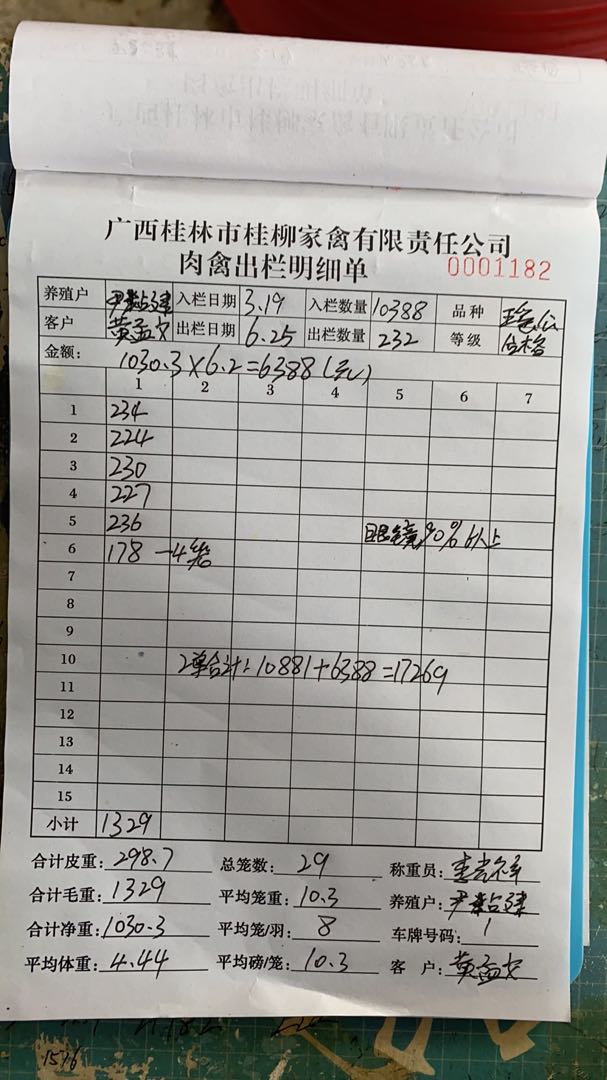 广西桂林市桂柳家禽有限责任公司
肉禽出栏明细单 0001182
养殖户 入栏日期 3.19 入栏数量 10388 品种
客户 黄孟文 出栏日期 6.25 出栏数量 232 等级 合格
金额: 1030.3×6.2=6388(元)
1 2 3 4 5 6 7
1 234
2 224
3 230
4 227
5 236 眼镜90%以上
6 178 -4笼
7
8
9
10 2单合计:10881+6388=17269
11
12
13
14
15
小计 1329
合计皮重: 298.7 总笼数: 29 称重员:
合计毛重: 1329 平均笼重: 10.3 养殖户:
合计净重: 1030.3 平均笼/羽: 8 车牌号码: 1
平均体重: 4.44 平均磅/笼: 10.3 客 户: 黄孟文
1516